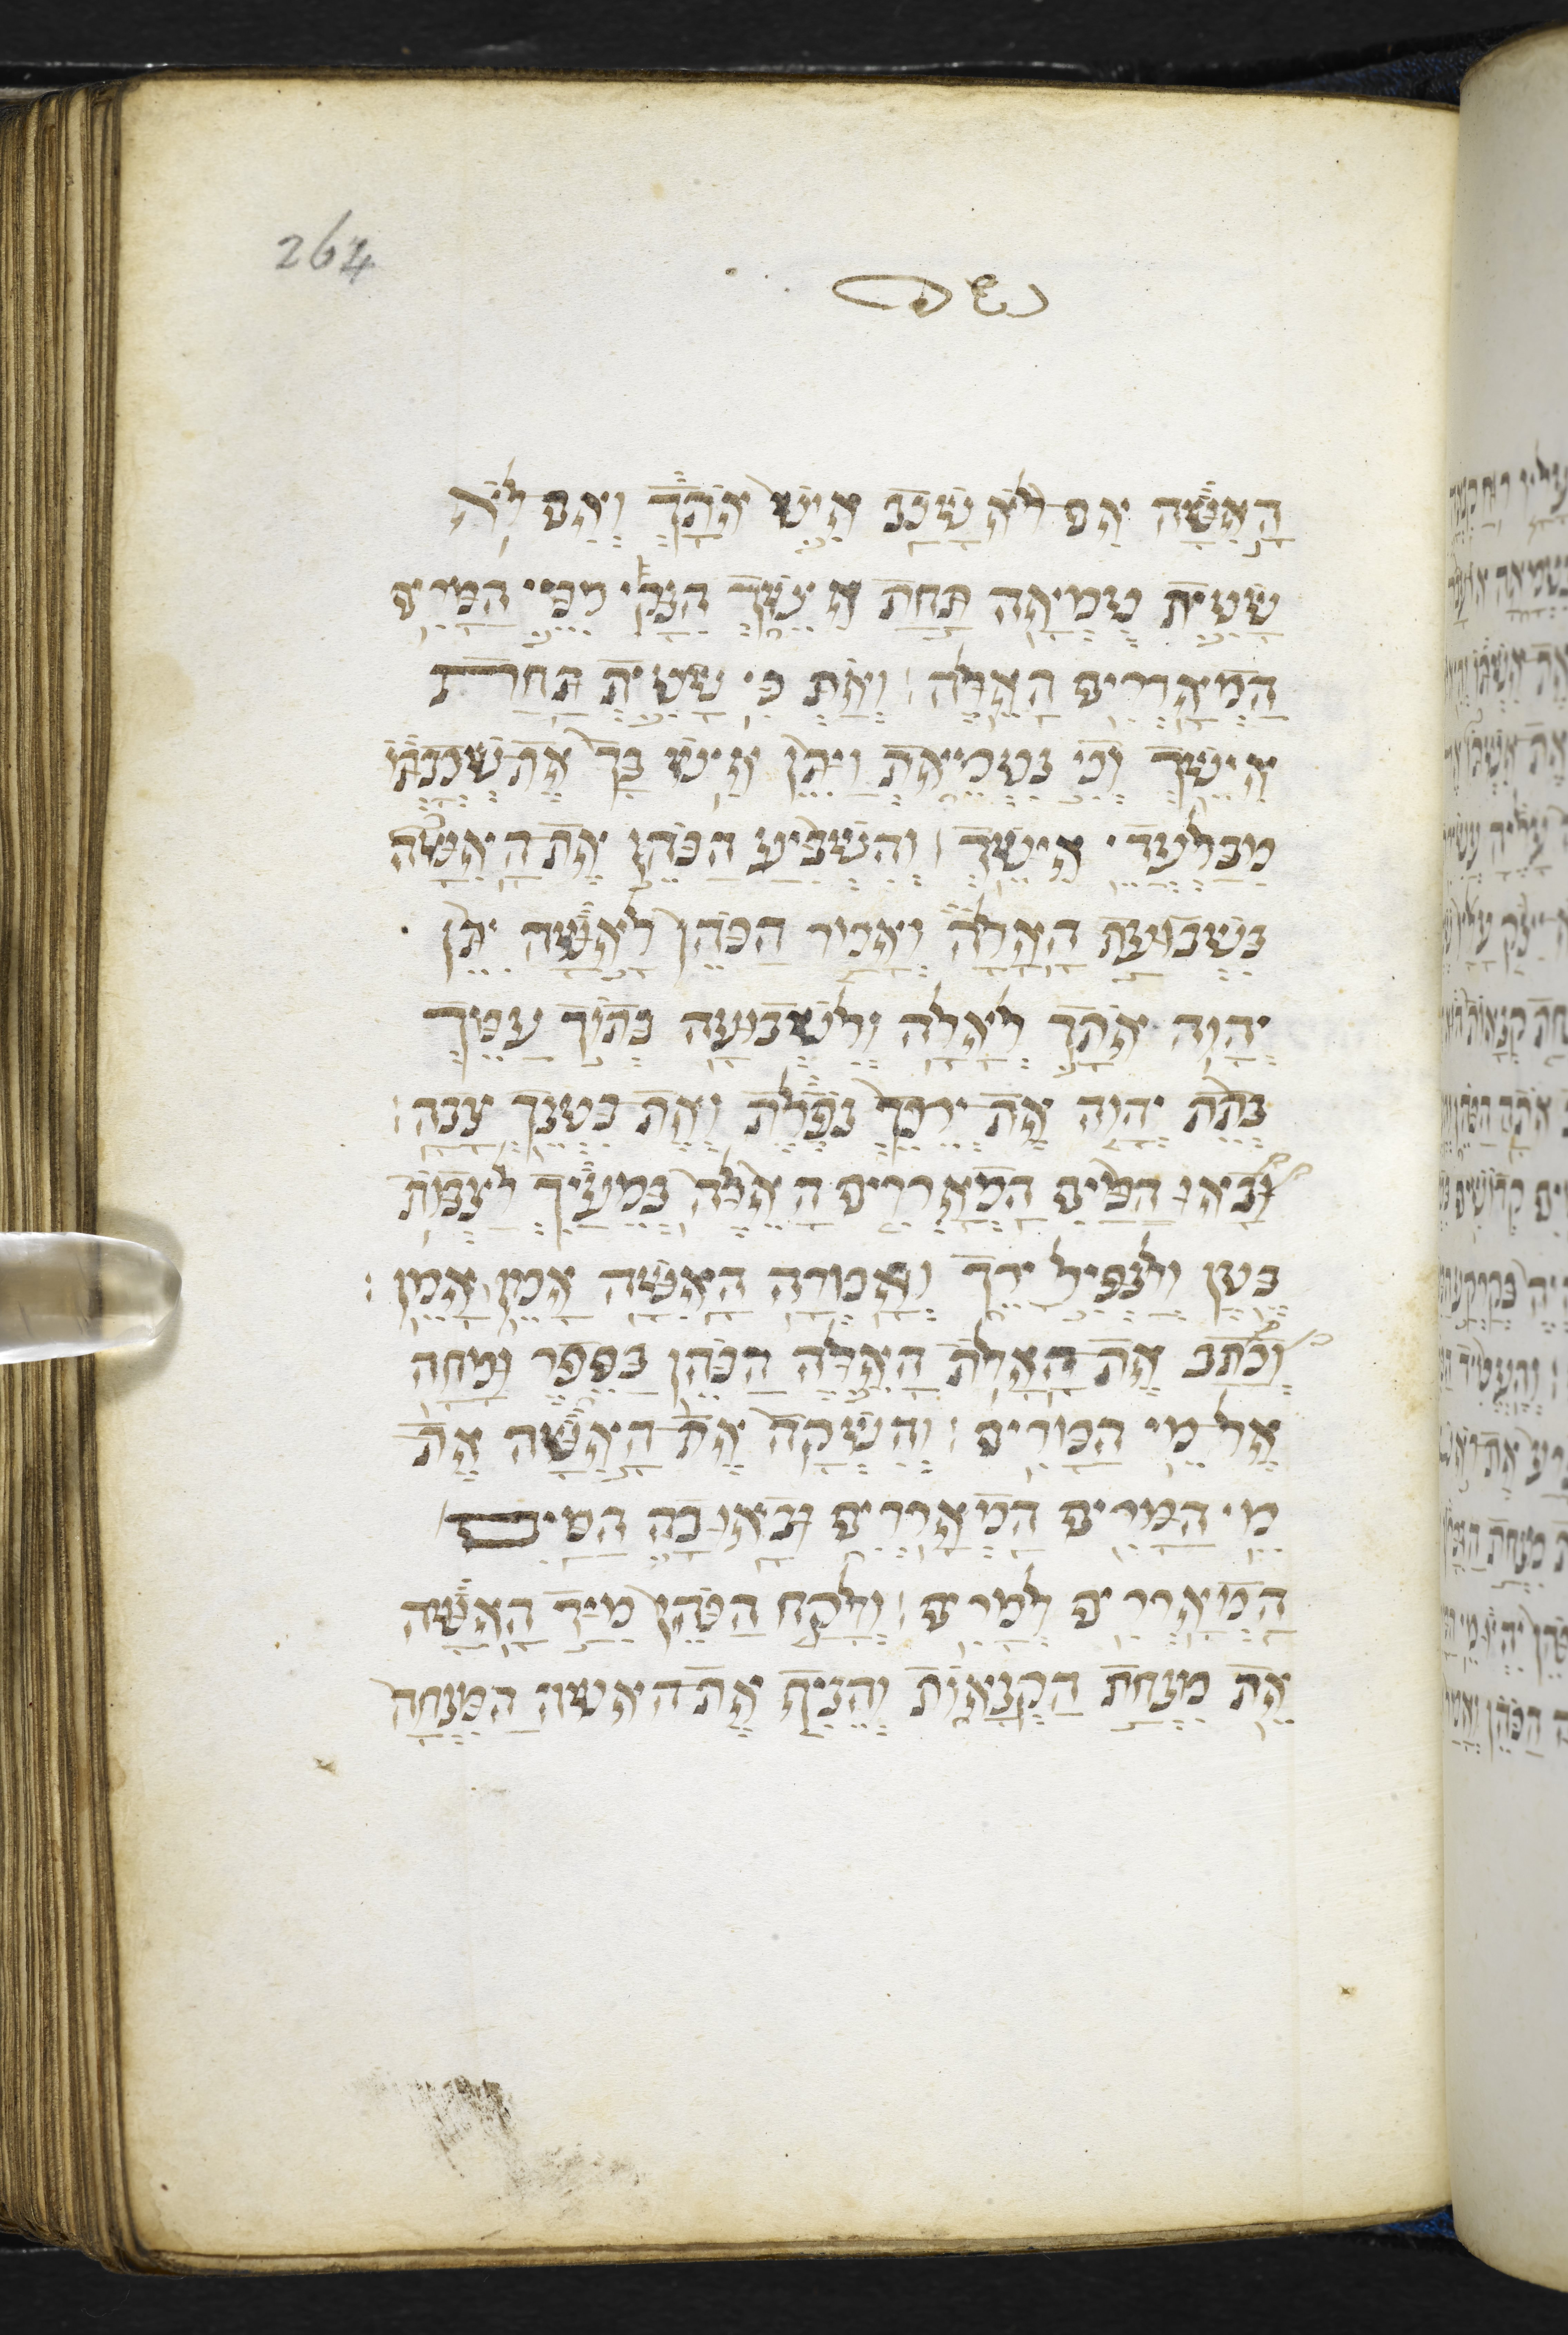 264
נשא
האשה אם לא שכב איש אתך ואם לא
שטית טמאה תחת אישך הנקי ממי המרים
המאררים האלה׃ ואת כי שטית תחת
אישך וכי נטמאת ויתן איש בך את שכבתו
מבלעדי אישך׃ והשביע הכהן את האשה
בשבועת האלה ואמר הכהן לאשה יתן
יהוה אתך לאלה ולשבועה בתוך עמך
בתת יהוה את ירכך נפלת ואת בטנך צבה׃
ובאו המים המאררים האלה במעיך לצבת
בטן ולנפיל ירך ואמרה האשה אמן אמן׃
וכתב את האלת האלה הכהן בספר ומחה
אל מי המרים׃ והשקה את האשה את
מי המרים המאררים ובאו בה המים
המאררים למרים׃ ולקח הכהן מיד האשה
את מנחת הקנאות והניף את האשה המנחה